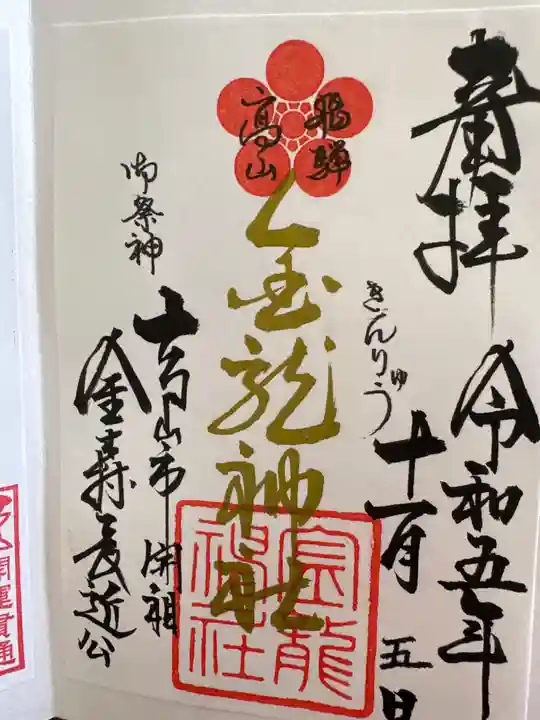 奉拝
令和五年
十一月五日
飛騨
高山
金龍神社
きんりゅう
御祭神
高山市開祖
金森長近公
金龍
神社
開運貫通